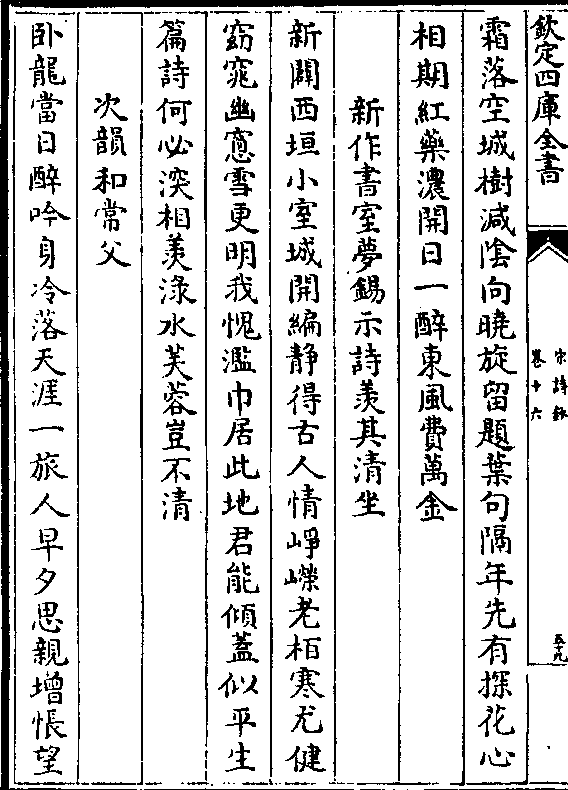 欽定四庫全書
宋詩鈔
卷十六
五九
霜落空城樹減隂向曉旋留題葉句隔年先有探花心
相期紅藥濃開日一醉東風費萬金
新作書室夢錫示詩羡其清坐
新闢西垣小室城開編静得古人情崢嶸老柏寒尤健
窈窕幽窻雪更明我愧濫巾居此地君能傾蓋似平生
篇詩何必深相羡渌水芙蓉豈不清
次韻和常父
卧龍當日醉吟身冷落天涯一旅人早夕思親增悵望